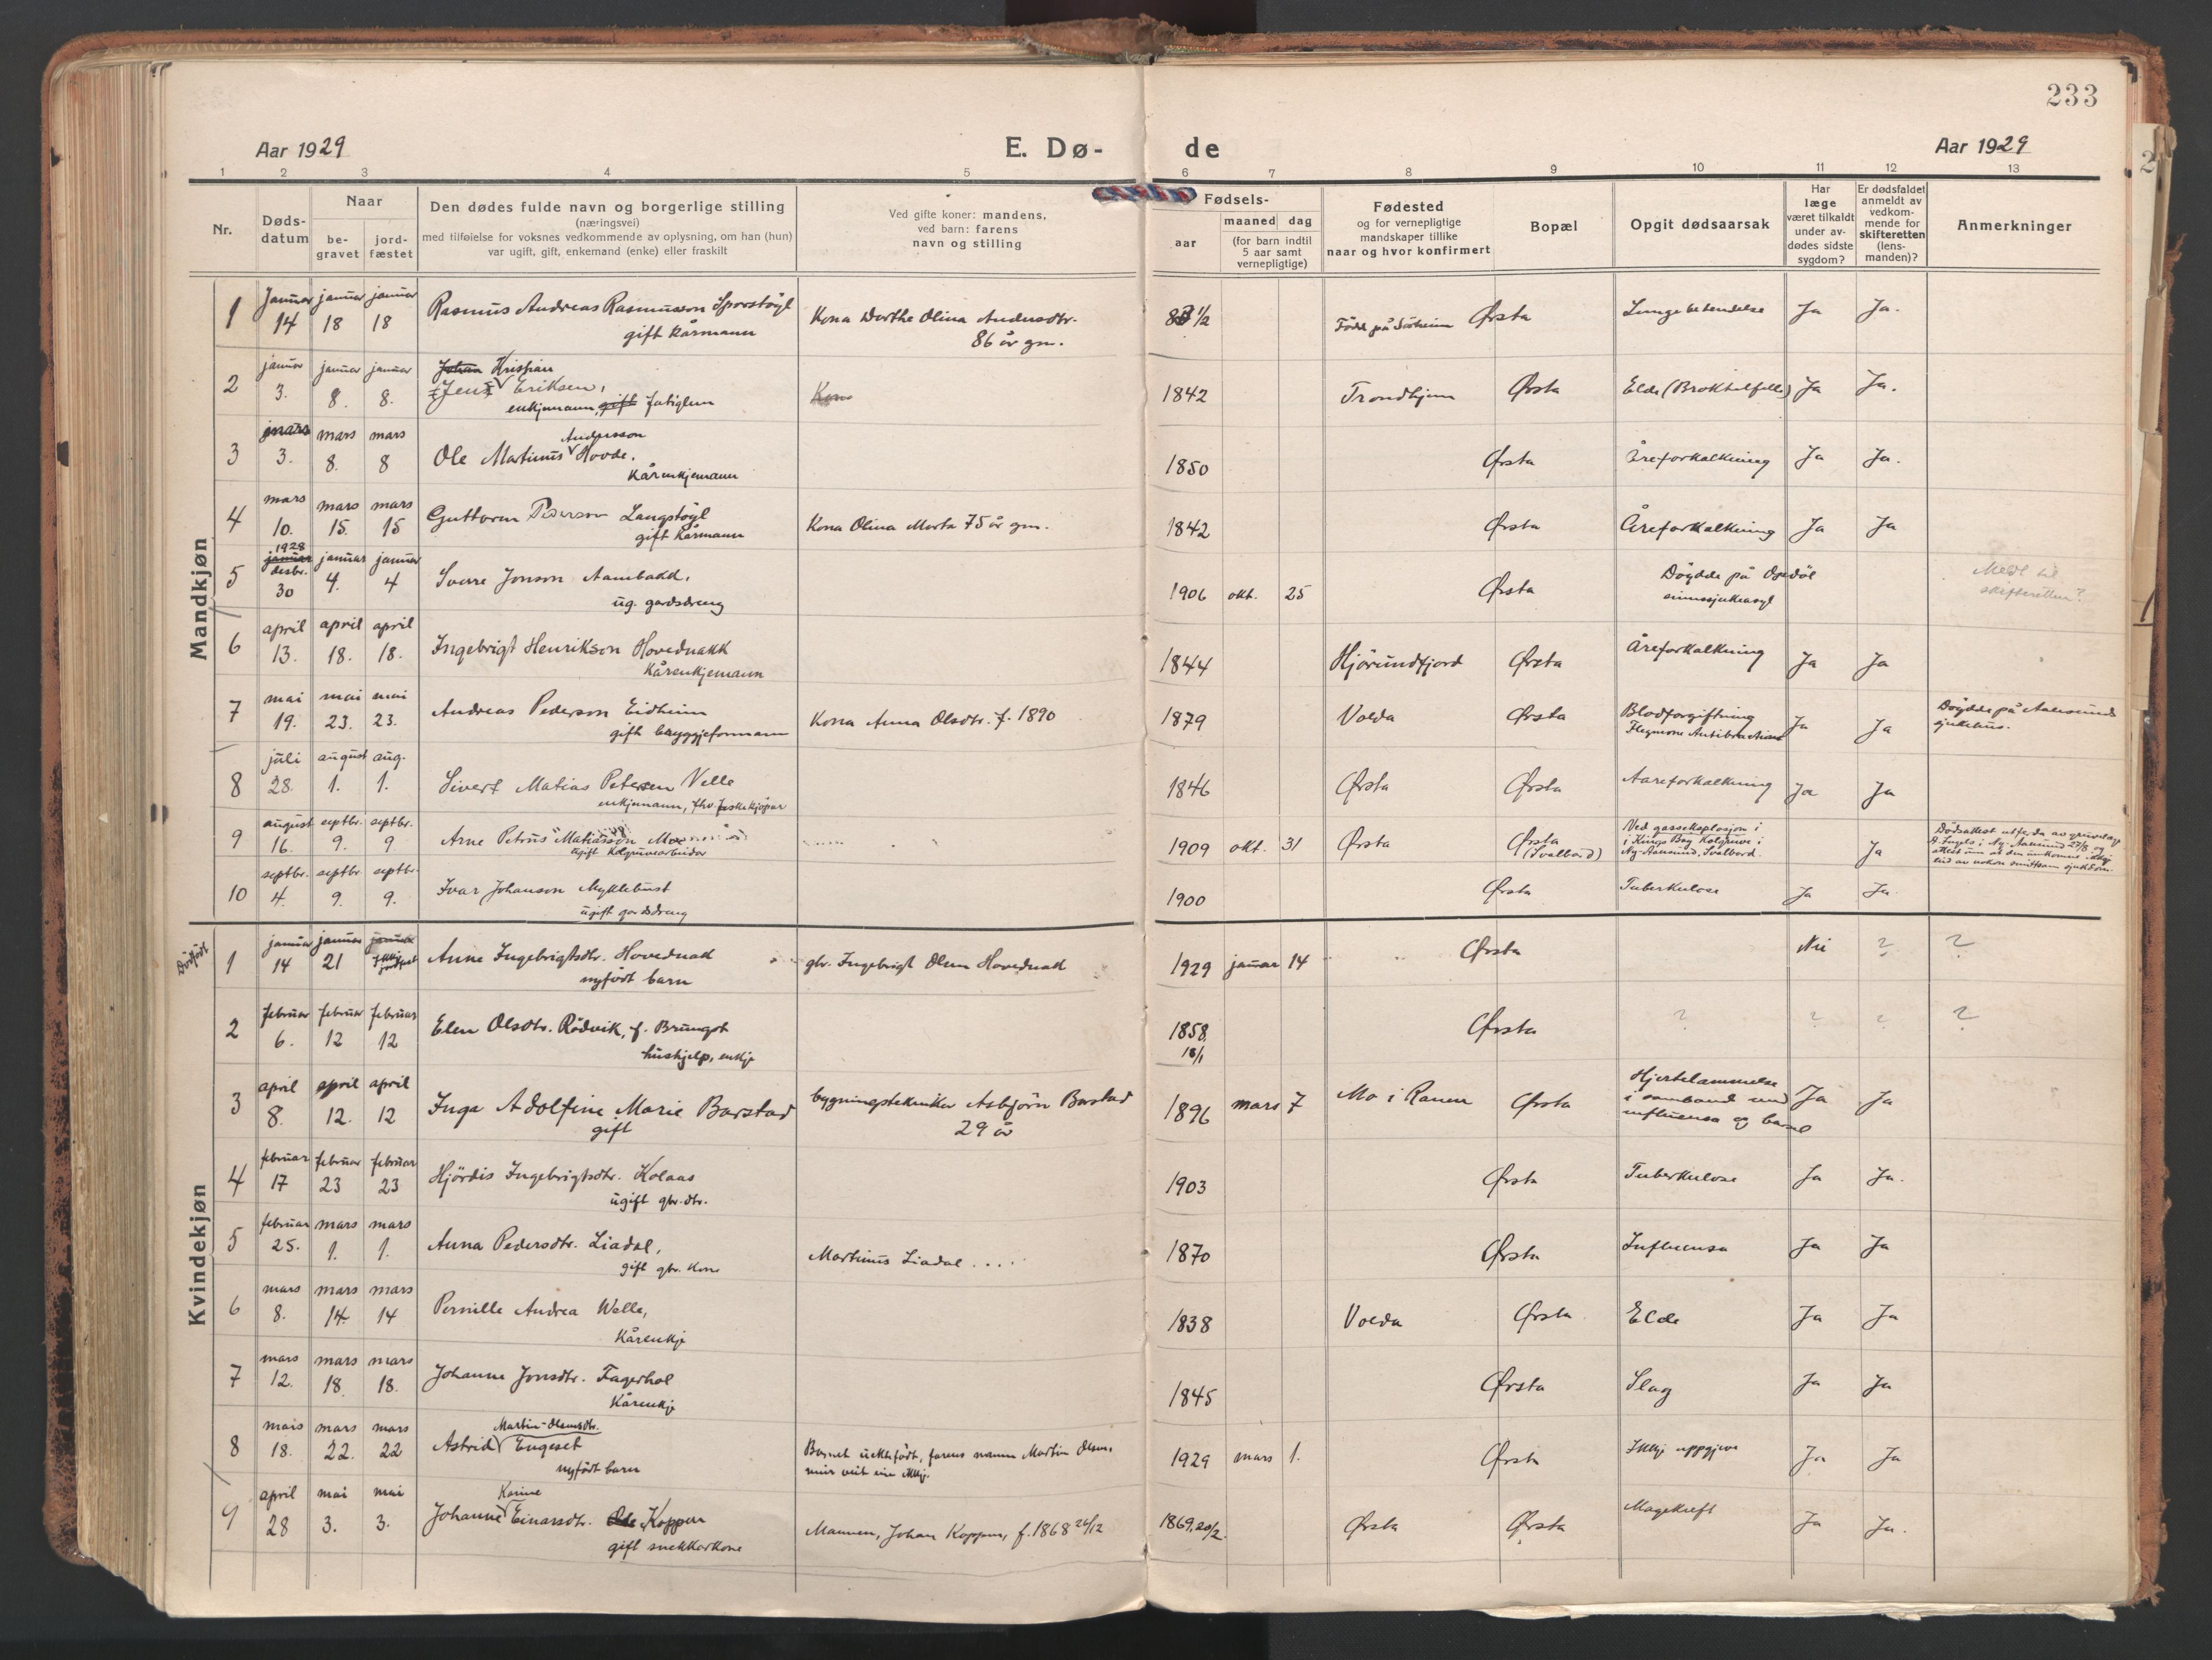 233
Aar 1929
E. Dø-
de
Aar 1929
1 2 3 4 5 6 7 8 9 10 11 12 13
Nr.
Døds-
datum
Naar
be-
gravet
jord-
fæstet
Den dødes fulde navn og borgerlige stilling
(næringsvei)
med tilføielse for voksnes vedkommende av oplysning, om han (hun)
var ugift, gift, enkemand (enke) eller fraskilt
Ved gifte koner: mandens,
ved barn: farens
navn og stilling
Fødsels-
aar
maaned dag
(for barn indtil
5 aar samt
vernepligtige)
Fødested
og for vernepligtige
mandskaper tillike
naar og hvor konfirmert
Bopæl
Opgit dødsaarsak
Har
læge
været tilkaldt
under av-
dødes sidste
sygdom?
Er dødsfaldet
anmeldt av
vedkom-
mende for
skifteretten
(lens-
manden)?
Anmerkninger
Mandkjøn
1 Januar januar januar
14 18 18
Rasmus Andreas Rasmusson
gift kårmann
Kona Dorthe Olina Andersdtr.
86 år gm.
1/2 Ørsta Ja Ja.
2 januar januar januar
3. 8. 8.
Johan Kristian
Jens Eriksen,
enkjemann, gift fatiglem
Kona
1842 Trondhjem Ørsta Elde Ja Ja.
3 mars mars mars
3. 8. 8
Andersson
Ole Martinus Hovde,
Kårenkjemann
1850 Ørsta Åreforkalkning Ja Ja.
4 mars mars mars
10. 15. 15
Guttorm Pederson Langstøyl
gift kårmann
Kona Olina Marta 75 år gm.
1842 Ørsta Åreforkalkning Ja Ja
5 1928
januar januar januar
desbr.
30 4. 4
Sverre Jonson Aambakk,
ug. gardsdreng
1906 okt. 25 Ørsta
Døydde på Opdøl
sinnssjukeasyl
Meldt til
skifteretten?
6 april april april
13. 18. 18.
Ingebrigt Henrikson Hovdenakk
Kårenkjemann
1844 Hjørundfjord Ørsta Åreforkalkning Ja Ja
7 mai mai mai
19. 23. 23.
Andreas Pederson Eidheim
gift byggjeformann
Kona Anna Olsdtr. f. 1890
1879 Volda Ørsta
Blodforgiftning
Flegmone
Ja Ja
Døydde på Aalesunds
sjukehus.
8 juli august aug.
28. 1. 1.
Sivert Matias Petersen Velle
enkjemann, fhv. fiskekjøpar
1846 Ørsta Ørsta Aareforkalkning Ja Ja
9 august septbr. septbr.
16. 9. 9
Arne Petrus Matiasson
ugift Kolgruvearbeidar
1909 okt. 31 Ørsta Ørsta
(Svalbard)
Ved gasseksplosjon i
i Kings Bay Kolgruve i
Ny-Aalesund, Svalbard.
Ja
10 septbr. septbr septbr.
4. 9. 9.
Ivar Johanson Myklebust
ugift gardsdreng
1900 Ørsta Tuberkulose Ja Ja.
Kvindekjøn
Dødfødt
1 januar januar januar
14 21 Ikkje
Anne Ingebrigtsdtr. Hovdenakk
nyfødt barn
gbr. Ingebrigt Olsen Hovdenakk
1929 januar 14 Ørsta Nei ? ?
2 februar februar februar
6. 12 12
Elen Olsdtr. Rødvik, f. Brungot
hushjelp, enkje
1858 Ørsta ? ? ? ?
3 april april april
8. 12. 12
Inga Adolfine Marie Barstad
gift
bygningstekniker Asbjørn Barstad
29 år
1896 mars 7 Mo i Ranen Ørsta
Hjertelammelse
i samband med
influensa og barsel
Ja Ja
4 februar februar februar
17 23 23
Hjørdis Ingebrigtsdtr. Kolaas
ugift gbr.dtr.
1903 Ørsta Tuberkulose Ja Ja.
5 februar mars mars
25. 1. 1.
Anna Pedersdtr. Liadal,
gift gbr. kone
Martinus Liadal ....
1870 Ørsta Influensa Ja Ja
6 mars mars mars
8. 14. 14
Pernille Andrea Welle,
Kårenkje
1838 Volda Ørsta Elde Ja Ja
7 mars mars mars
12. 18. 18.
Johanne Jonsdtr. Fagerhol
Kårenkje
1845 Ørsta Slag Ja Ja
8 mars mars mars
18. 22. 22
Martin-Olsensdtr.
Astrid Engeset
nyfødt barn
Barnet uektefødt, farens namn Martin Olsen,
meir veit ein ikkje.
1929 mars 1. Ørsta Ikkje uppgjeve Ja Ja
9 april mai mai
28 3. 3.
Karine
Johanne Einarsdtr. Koppen
gift snekkarkone
Mannen, Johan Koppen, f. 1868 26/12
1869, 20/2. Ørsta Ørsta Magekreft Ja Ja.